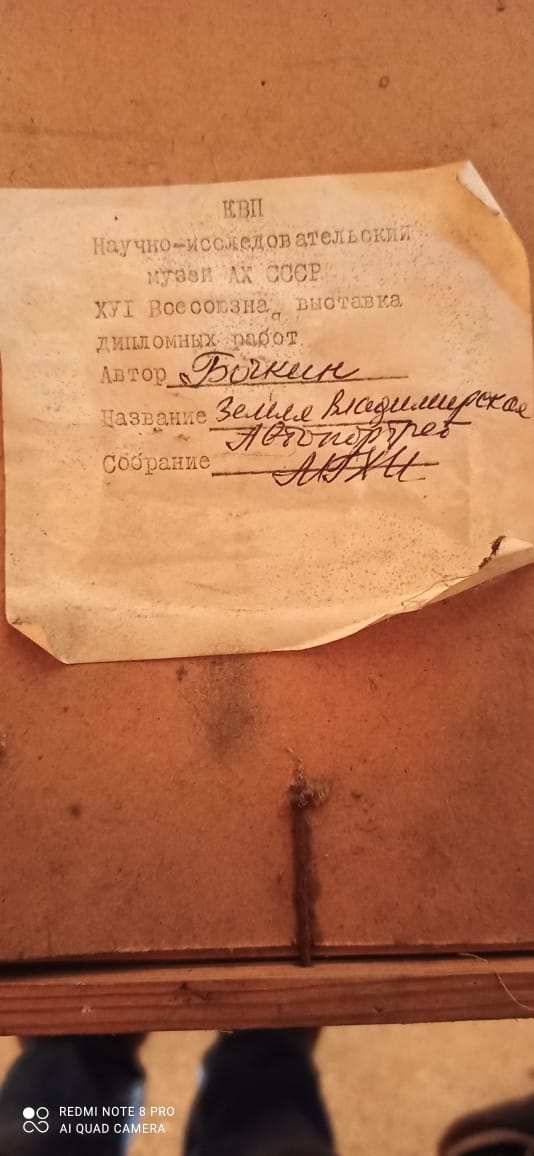 КВП
Научно-исследовательский
музей АХ СССР
ХУІ Всесоюзная выставка
дипломных работ
Автор Бочкин
Название Земля Владимирская
Автопортрет
Собрание МГХИ
REDMI NOTE 8 PRO
AI QUAD CAMERA